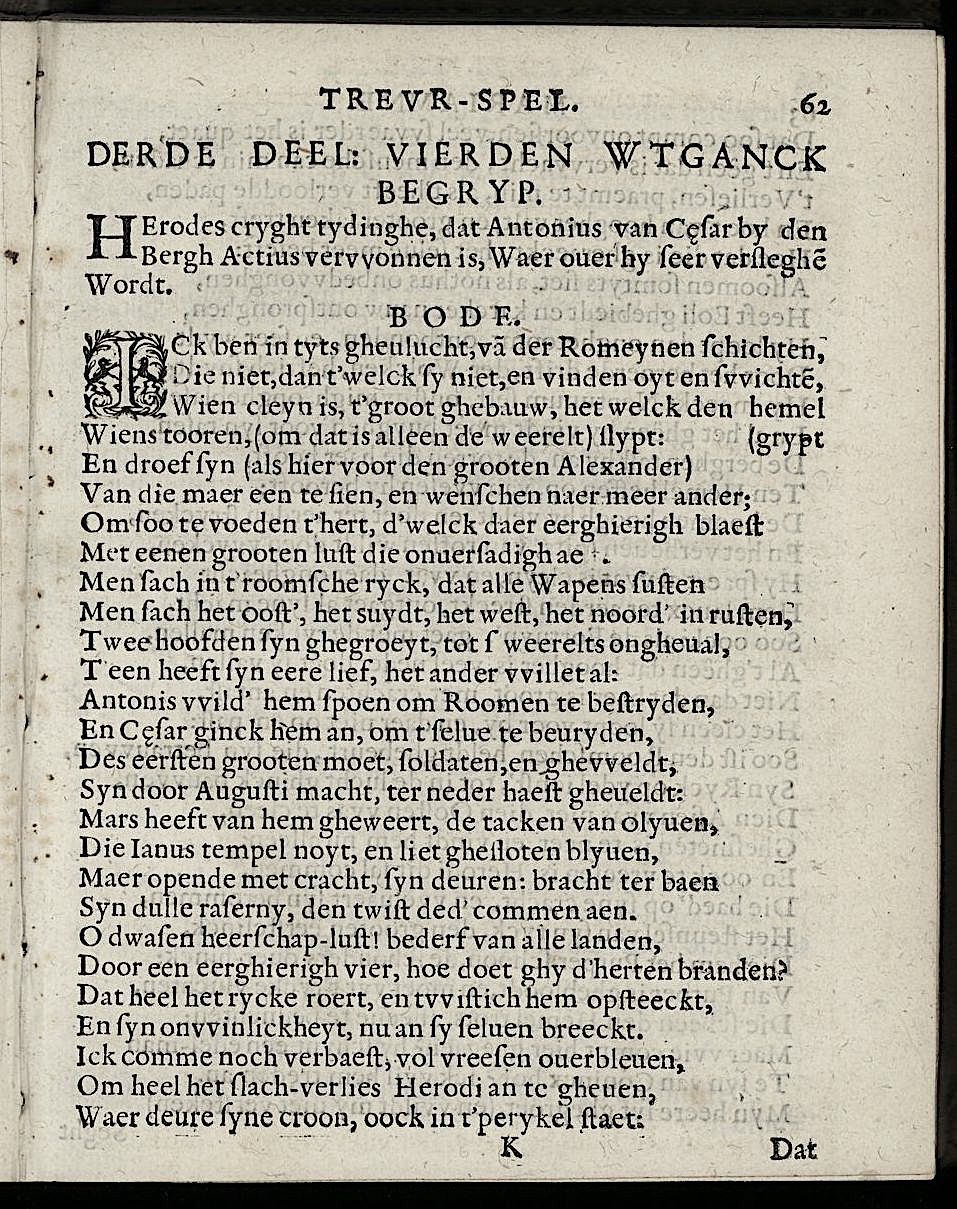 TREVR-SPEL. 62
DERDE DEEL: VIERDEN WTGANCK
BEGRYP.
HErodes cryght tydinghe, dat Antonius van Cęsar by den
Bergh Actius vervvonnen is, Waer ouer hy seer versleghē
Wordt.
BODE.
ICk ben in tyts gheulucht, vā der Romeynen schichten,
Die niet, dan t'welck sy niet, en vinden oyt en svvichtē,
Wien cleyn is, t'groot ghebauw, het welck den hemel
Wiens tooren, (om dat is alleen de weerelt) slypt: (grypt
En droef syn (als hier voor den grooten Alexander)
Van die maer een te sien, en wenschen naer meer ander;
Om soo te voeden t'hert, d'welck daer eerghierigh blaest
Met eenen grooten lust die onuersadigh
Men sach in t'roomsche ryck, dat alle Wapens susten
Men sach het oost', het suydt, het west, het noord' in rusten,
Twee hoofden syn ghegroeyt, tot s weerelts ongheual,
T'een heeft syn eere lief, het ander vvillet al:
Antonis vvild' hem spoen om Roomen te bestryden,
En Cęsar ginck hem an, om t'selue te beuryden,
Des eersten grooten moet, soldaten, en ghevveldt,
Syn door Augusti macht, ter neder haest gheueldt:
Mars heeft van hem gheweert, de tacken van olyuen,
Die Ianus tempel noyt, en liet ghesloten blyuen,
Maer opende met cracht, syn deuren: bracht ter baen
Syn dulle raserny, den twist ded' commen aen.
O dwasen heerschap-lust! bederf van alle landen,
Door een eerghierigh vier, hoe doet ghy d'herten branden?
Dat heel het rycke roert, en tvvistich hem opsteeckt,
En syn onvvinlickheyt, nu an sy seluen breeckt.
Ick comme noch verbaest, vol vreesen ouerbleuen,
Om heel het slach-verlies Herodi an te gheuen,
Waer deure syne croon, oock in t'perykel staet:
K Dat